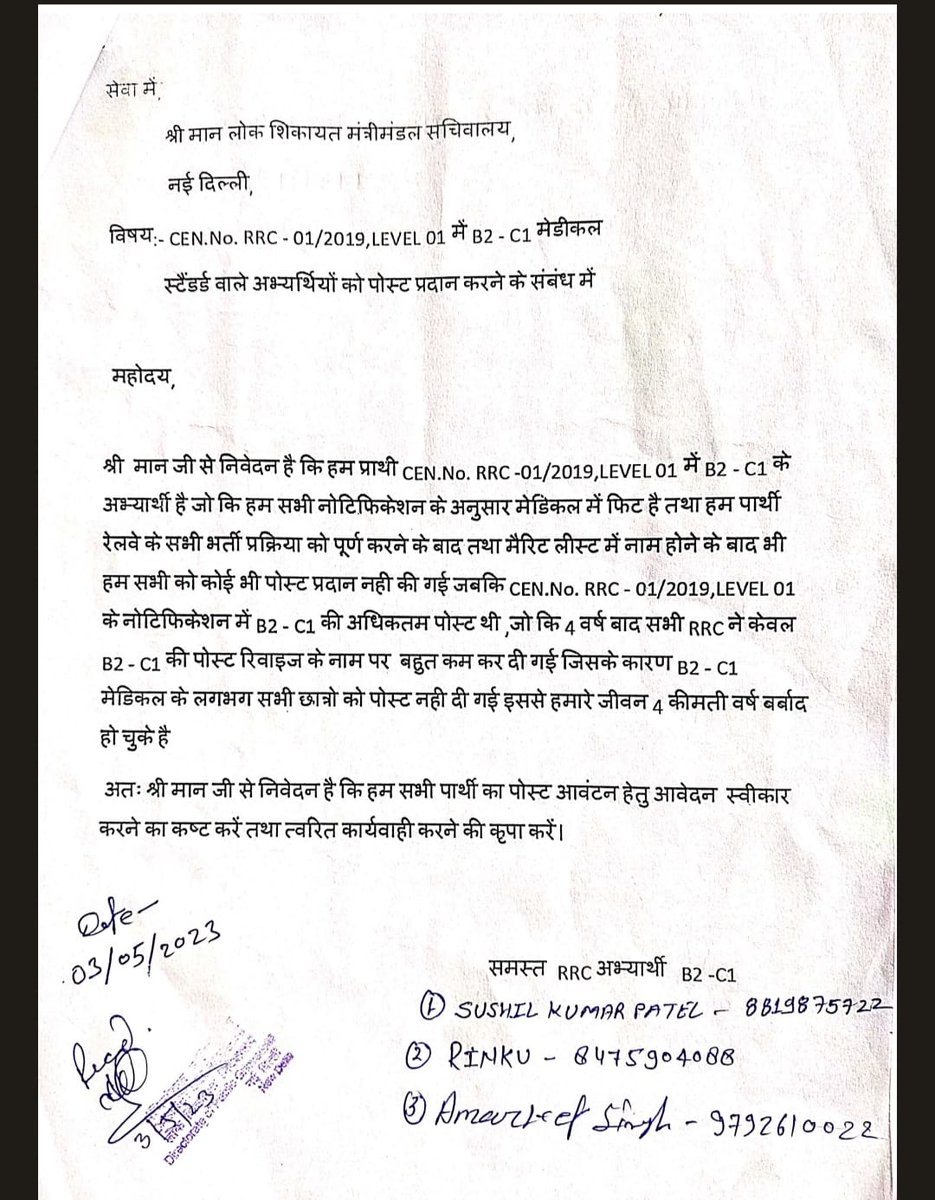 सेवा में,
श्री मान लोक शिकायत मंत्रीमंडल सचिवालय,
नई दिल्ली,
विषय:- CEN.No. RRC - 01/2019,LEVEL 01 में B2 - C1 मेडीकल
स्टैंडर्ड वाले अभ्यर्थियों को पोस्ट प्रदान करने के संबंध में
महोदय,
श्री मान जी से निवेदन है कि हम प्राथी CEN.No. RRC -01/2019,LEVEL 01 में B2 - C1 के
अभ्यार्थी है जो कि हम सभी नोटिफिकेशन के अनुसार मेडिकल में फिट है तथा हम पार्थी
रेलवे के सभी भर्ती प्रक्रिया को पूर्ण करने के बाद तथा मैरिट लीस्ट में नाम होने के बाद भी
हम सभी को कोई भी पोस्ट प्रदान नही की गई जबकि CEN.No. RRC - 01/2019,LEVEL 01
के नोटिफिकेशन में B2 - C1 की अधिकतम पोस्ट थी ,जो कि 4 वर्ष बाद सभी RRC ने केवल
B2 - C1 की पोस्ट रिवाइज के नाम पर बहुत कम कर दी गई जिसके कारण B2 - C1
मेडिकल के लगभग सभी छात्रो को पोस्ट नही दी गई इससे हमारे जीवन 4 कीमती वर्ष बर्बाद
हो चुके है
अतः श्री मान जी से निवेदन है कि हम सभी पार्थी का पोस्ट आवंटन हेतु आवेदन स्वीकार
करने का कष्ट करें तथा त्वरित कार्यवाही करने की कृपा करें।
Date-
03/05/2023
समस्त RRC अभ्यार्थी B2 -C1
① SUSHIL KUMAR PATEL - 8819875722
② RINKU - 8475904088
③ Amarjeet Singh - 9792610022
3/5/23
Directorate of Public Grievances
नई दिल्ली
New Delhi